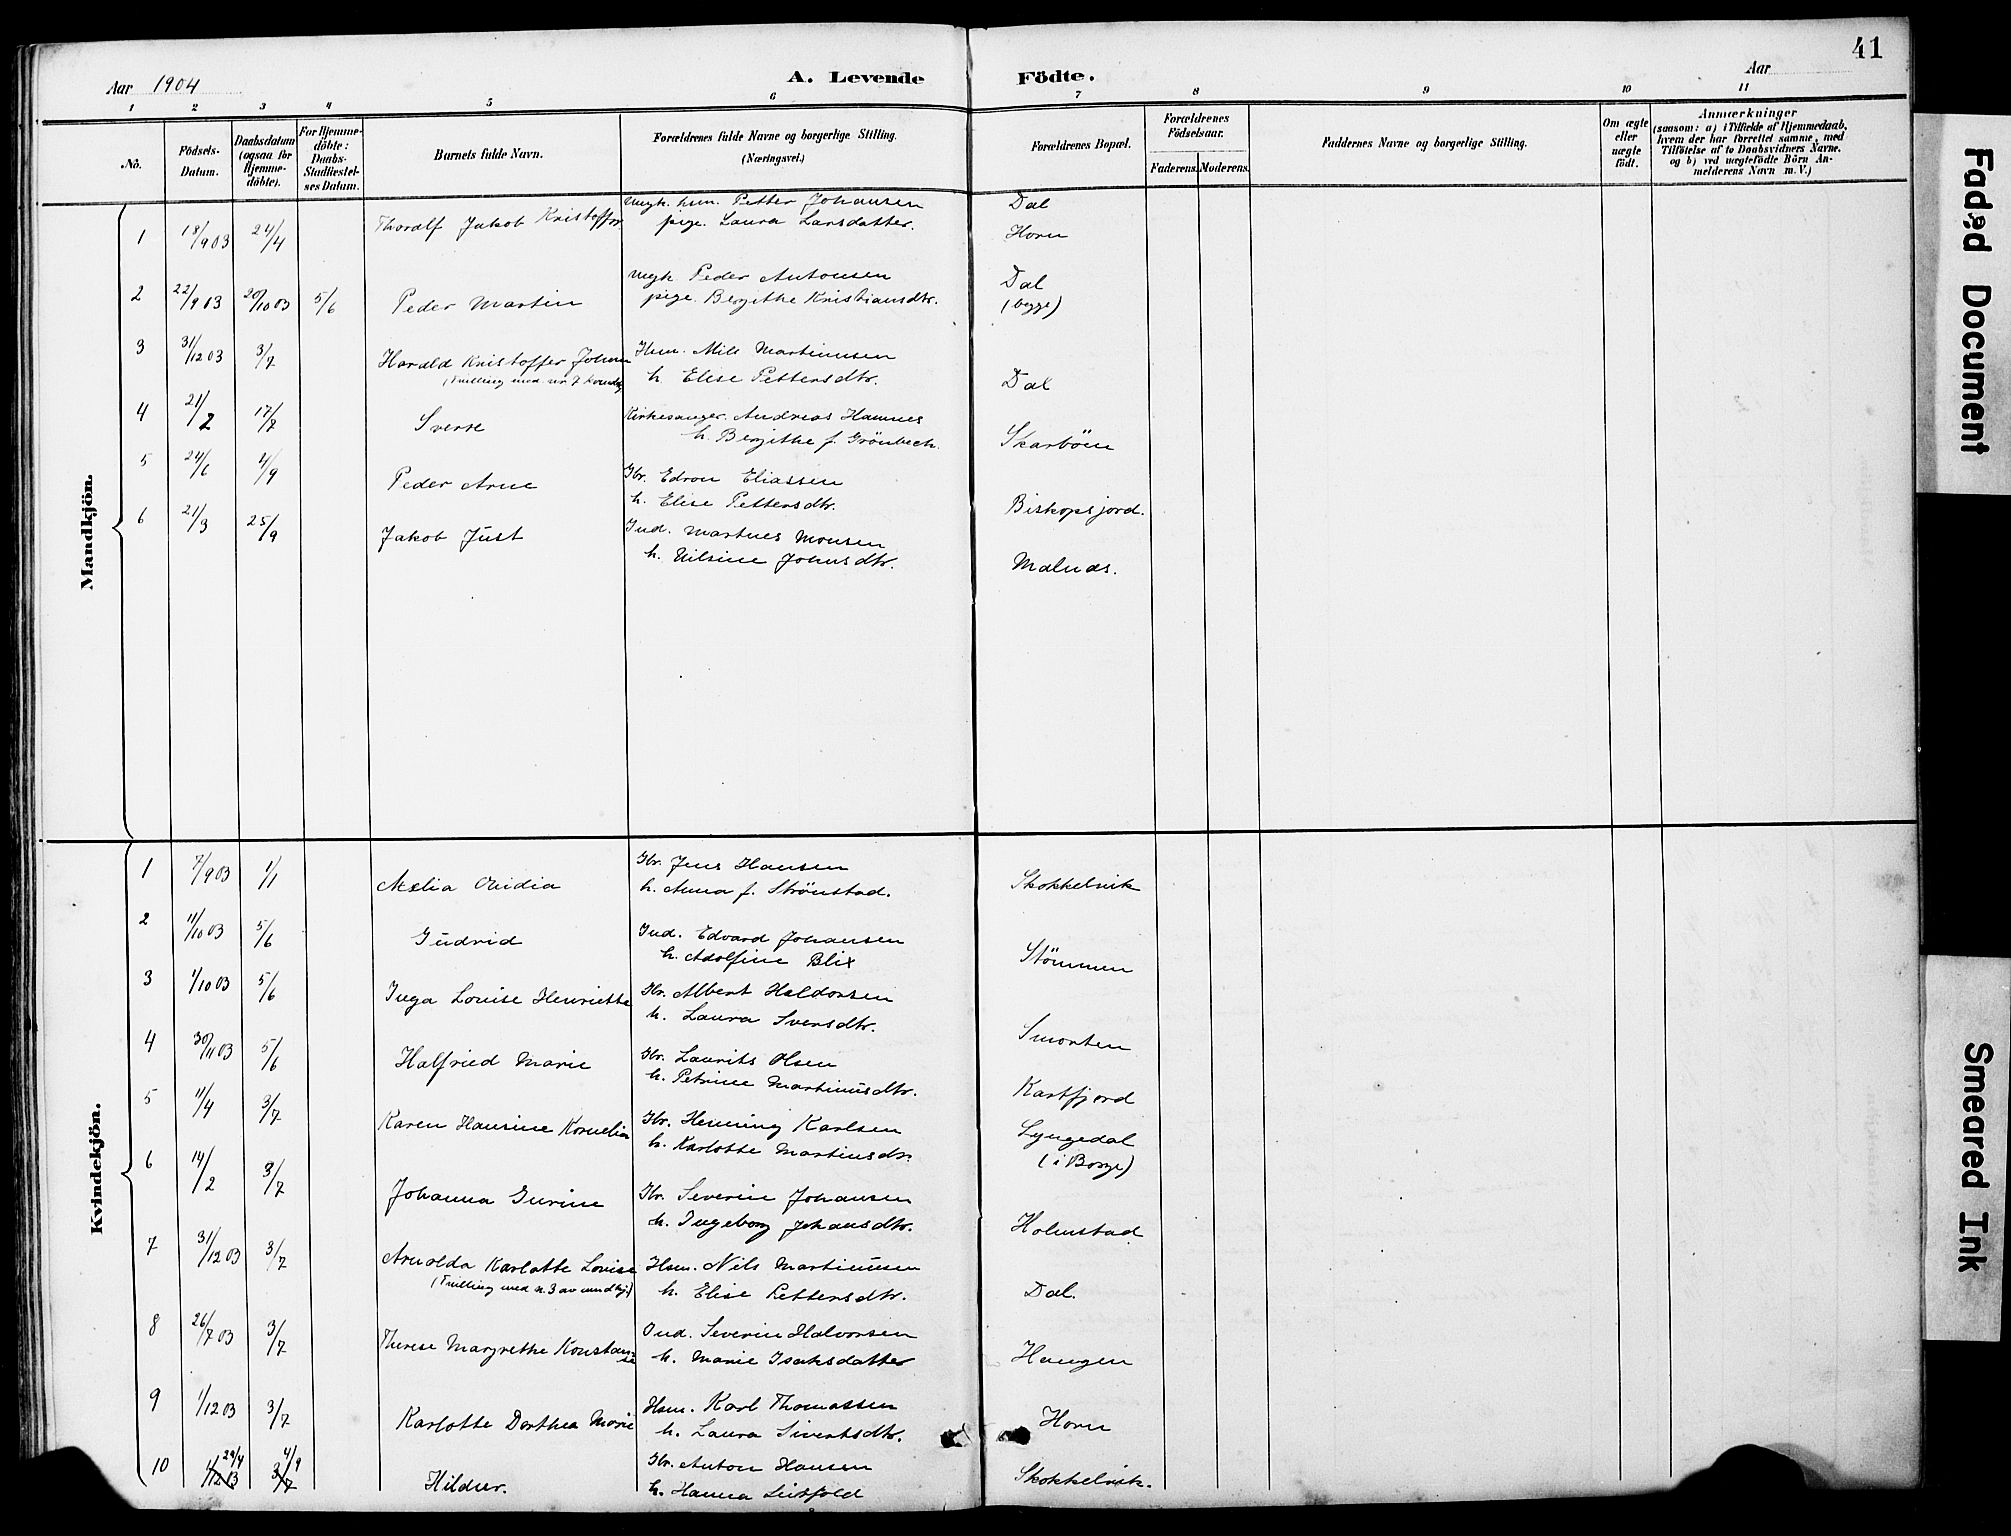 41
Aar 1904
A. Levende Födte.
Aar
1 2 3 4 5 6 7 8 9 10 11
No.
Födsels-Datum.
Daabsdatum (ogsaa for Hjemme-döbte).
For Hjemme-döbte: Daabs-Stadfæstel-ses Datum.
Barnets fulde Navn.
Forældrenes fulde Navne og borgerlige Stilling.
(Næringsvei.)
Forældrenes Bopæl.
Forældrenes Födselsaar.
Faderens. Moderens.
Faddernes Navne og borgerlige Stilling.
Om ægte eller uægte födt.
Anmærkninger
(saasom: a) i Tilfælde af Hjemmedaab,
hvem der har forrettet samme, med
Tilföielse af to Daabsvidners Navne,
og b) ved uægtefödte Börn An-
melderens Navn m. V.)
Mandkjön.
1 18/9 03 24/4 Thoralf Jakob Kristoffer Ungk. hsm. Petter Johansen Dal
pige. Laura Larsdatter. Horn
2 22/9 03 20/10 03 5/6 Peder Martin Ungk. Peder Antonsen Dal
pige. Bergithe Kristiansdtr. (begge)
3 31/12 03 3/7 Harald Kristoffer Johan Hsm. Nils Martinusen
(Tvilling med nr. 7 kvindkj) h. Elise Pettersdtr. Dal
4 21/2 17/7 Sverre Kirkesanger. Andreas Hamnes
h. Bergithe f. Grönbech. Skarböen
5 24/6 4/9 Peder Arne Gbr. Edvon Eliassen
h. Elise Pettersdtr. Biskopsjord.
6 21/3 25/9 Jakob Just Ind. Martnes Monsen
h. Nilsine Johnsdtr. Malnes.
Kvindekjön.
1 7/9 03 1/1 Aslia Ovidia Gbr. Jens Hansen
h. Anna f. Strönstad. Skokkelvik
2 11/10 03 5/6 Gudrid Ind. Edvard Johansen
h. Adolfine Blix Stömmen
3 1/10 03 5/6 Inga Louise Henriette Gbr. Albert Haldorsen
h. Laura Sversdtr. Smorten
4 30/11 03 5/6 Halfried Marie Gbr. Laurits Olsen
h. Petrine Martinusdtr. Kartfjord
5 11/4 3/7 Karen Hansine Kornelia Gbr. Henning Karlsen Lyngedal
h. Karlotte Martinsdtr. (i Borge)
6 14/2 3/7 Johanna Gurine Gbr. Severin Johansen
h. Ingeborg Johansdtr. Holmstad
7 31/12 03 3/7 Arnolda Karlotte Lovise Hsm. Nils Martinusen
(Tvilling med n. 3 av mandkj.) h. Elise Pettersdtr. Dal.
8 26/7 03 3/7 Therese Margrethe Konstanse Ind. Severin Halvorsen
h. Marie Isaksdatter Haugen
9 1/12 03 3/7 Karlotte Dorthea Marie Hsm. Karl Thomassen
h. Laura Sivertsdtr. Horn
10 29/4 4/9 Hildur. Gbr. Anton Hansen
h. Hanna Leitfold Skokkelvik.
Faded Document
Smeared Ink